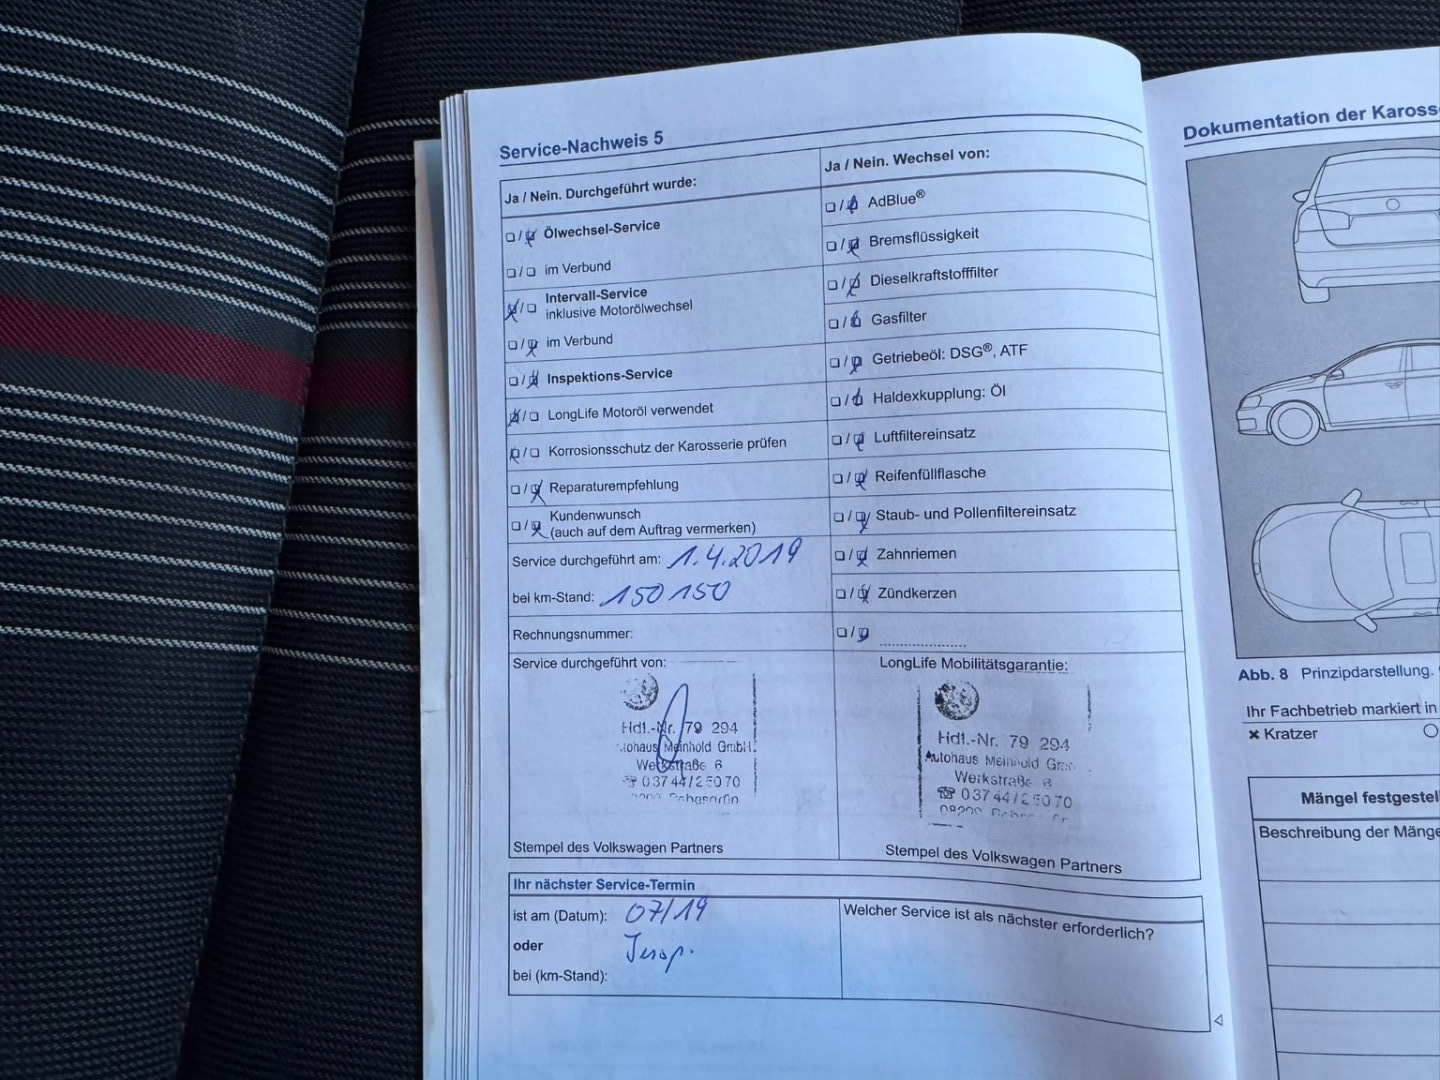 Service-Nachweis 5
Ja / Nein. Durchgeführt wurde:
Ölwechsel-Service
im Verbund
Intervall-Service
inklusive Motorölwechsel
im Verbund
Inspektions-Service
LongLife Motoröl verwendet
Korrosionsschutz der Karosserie prüfen
Reparaturempfehlung
Kundenwunsch
(auch auf dem Auftrag vermerken)
Service durchgeführt am: 1.4.2019
bei km-Stand: 150150
Rechnungsnummer:
Service durchgeführt von:
Hdl.-Nr. 79 294
Meinhold GmbH
Werkstraße 6
☎ 03744/25070
Stempel des Volkswagen Partners
Ja / Nein. Wechsel von:
AdBlue®
Bremsflüssigkeit
Dieselkraftstofffilter
Gasfilter
Getriebeöl: DSG®, ATF
Haldexkupplung: Öl
Luftfiltereinsatz
Reifenfüllflasche
Staub- und Pollenfiltereinsatz
Zahnriemen
Zündkerzen
LongLife Mobilitätsgarantie:
Hdl.-Nr. 79 294
Autohaus Meinhold
Werkstraße 6
☎ 03744/25070
Stempel des Volkswagen Partners
Ihr nächster Service-Termin
ist am (Datum): 07/19
oder
bei (km-Stand):
Welcher Service ist als nächster erforderlich?
Dokumentation der Kaross
Abb. 8 Prinzipdarstellung.
Ihr Fachbetrieb markiert in
✖ Kratzer
Mängel festgestel
Beschreibung der Mänge